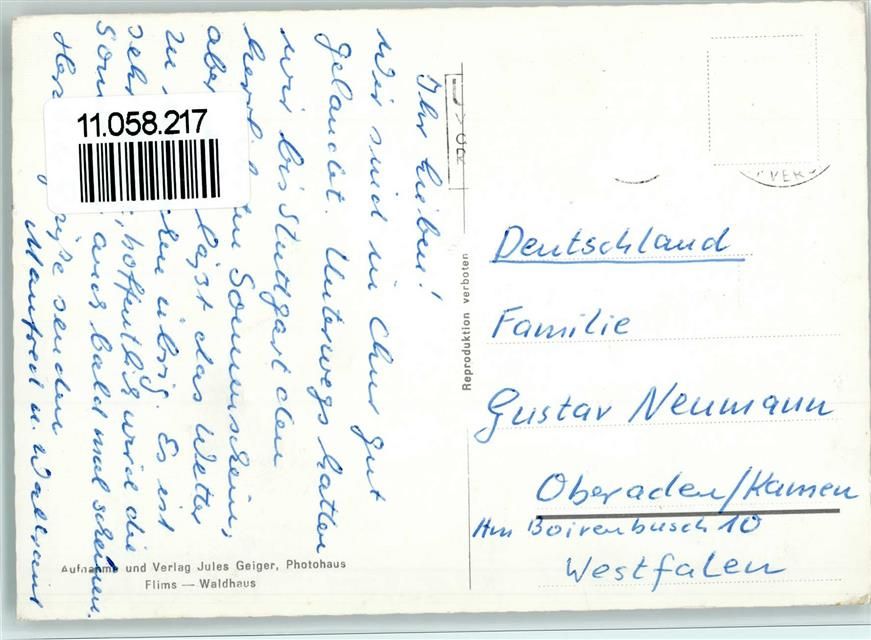 Ihr Lieben!
Wir sind in Chur gut
gelandet. Unterwegs hatten
wir bis Stuttgart den
Sonnenschein,
aber läßt das Wetter
zu übrig. Es ist
sehr, hoffentlich wird die
auch bald mal scheinen.
senden
Manfred u. Waltraut
11.058.217
Reproduktion verboten
Deutschland
Familie
Gustav Neumann
Oberaden/Kamen
Am Boirenbusch 10
Westfalen
Aufnahme und Verlag Jules Geiger, Photohaus
Flims — Waldhaus